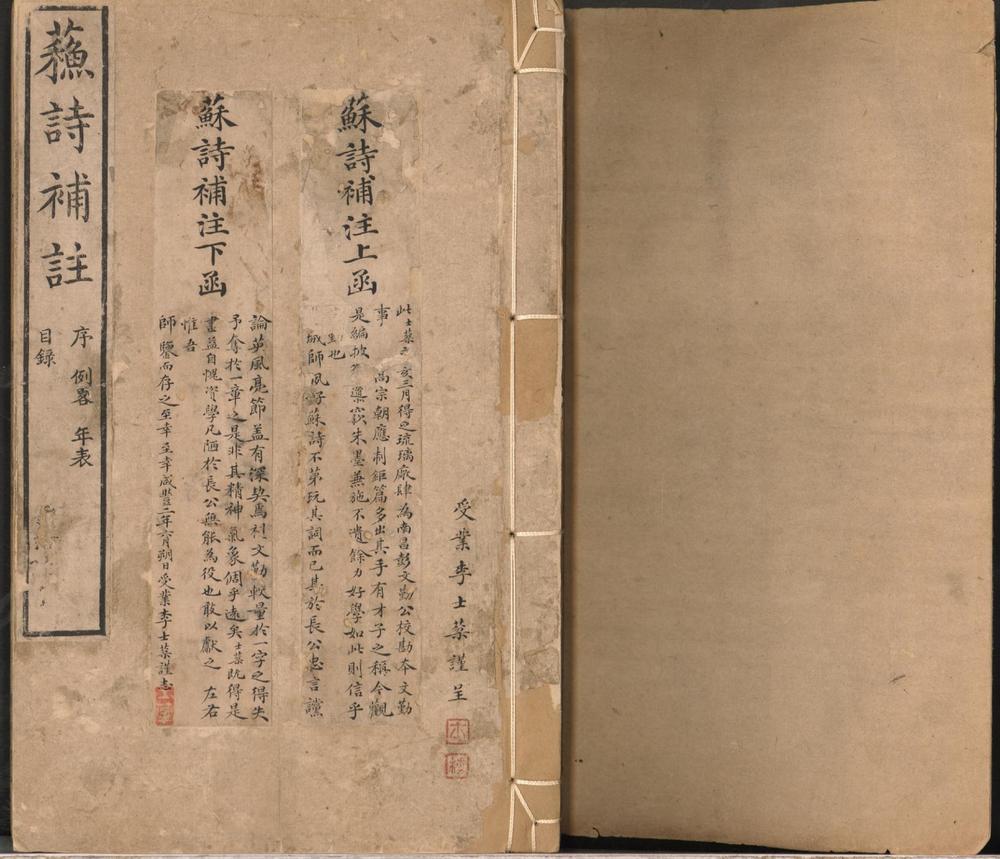 受業李士棻謹呈
蘇詩補注上函
此士棻亥三月得之琉璃廠肆為南昌彭文勤公校勘本文勤
事 高宗朝應制鉅篇多出其手有才子之稱今觀
是編披導窾朱墨兼施不遺餘力好學如此則信乎
也
師夙好蘇詩不第玩其詞而已其於長公忠言讜
蘇詩補注下函
論英風亮節蓋有深契焉文勤較量於一字之得失
予奪於一章之是非其精神氣象倜乎遠矣士棻既得是
書益自愧資學凡陋於長公無能為役也敢以獻之 左右
惟吾
師鑒而存之至幸至幸咸豐二年六月朔日受業李士棻謹志
蘓詩補註
序 例畧 年表
目錄